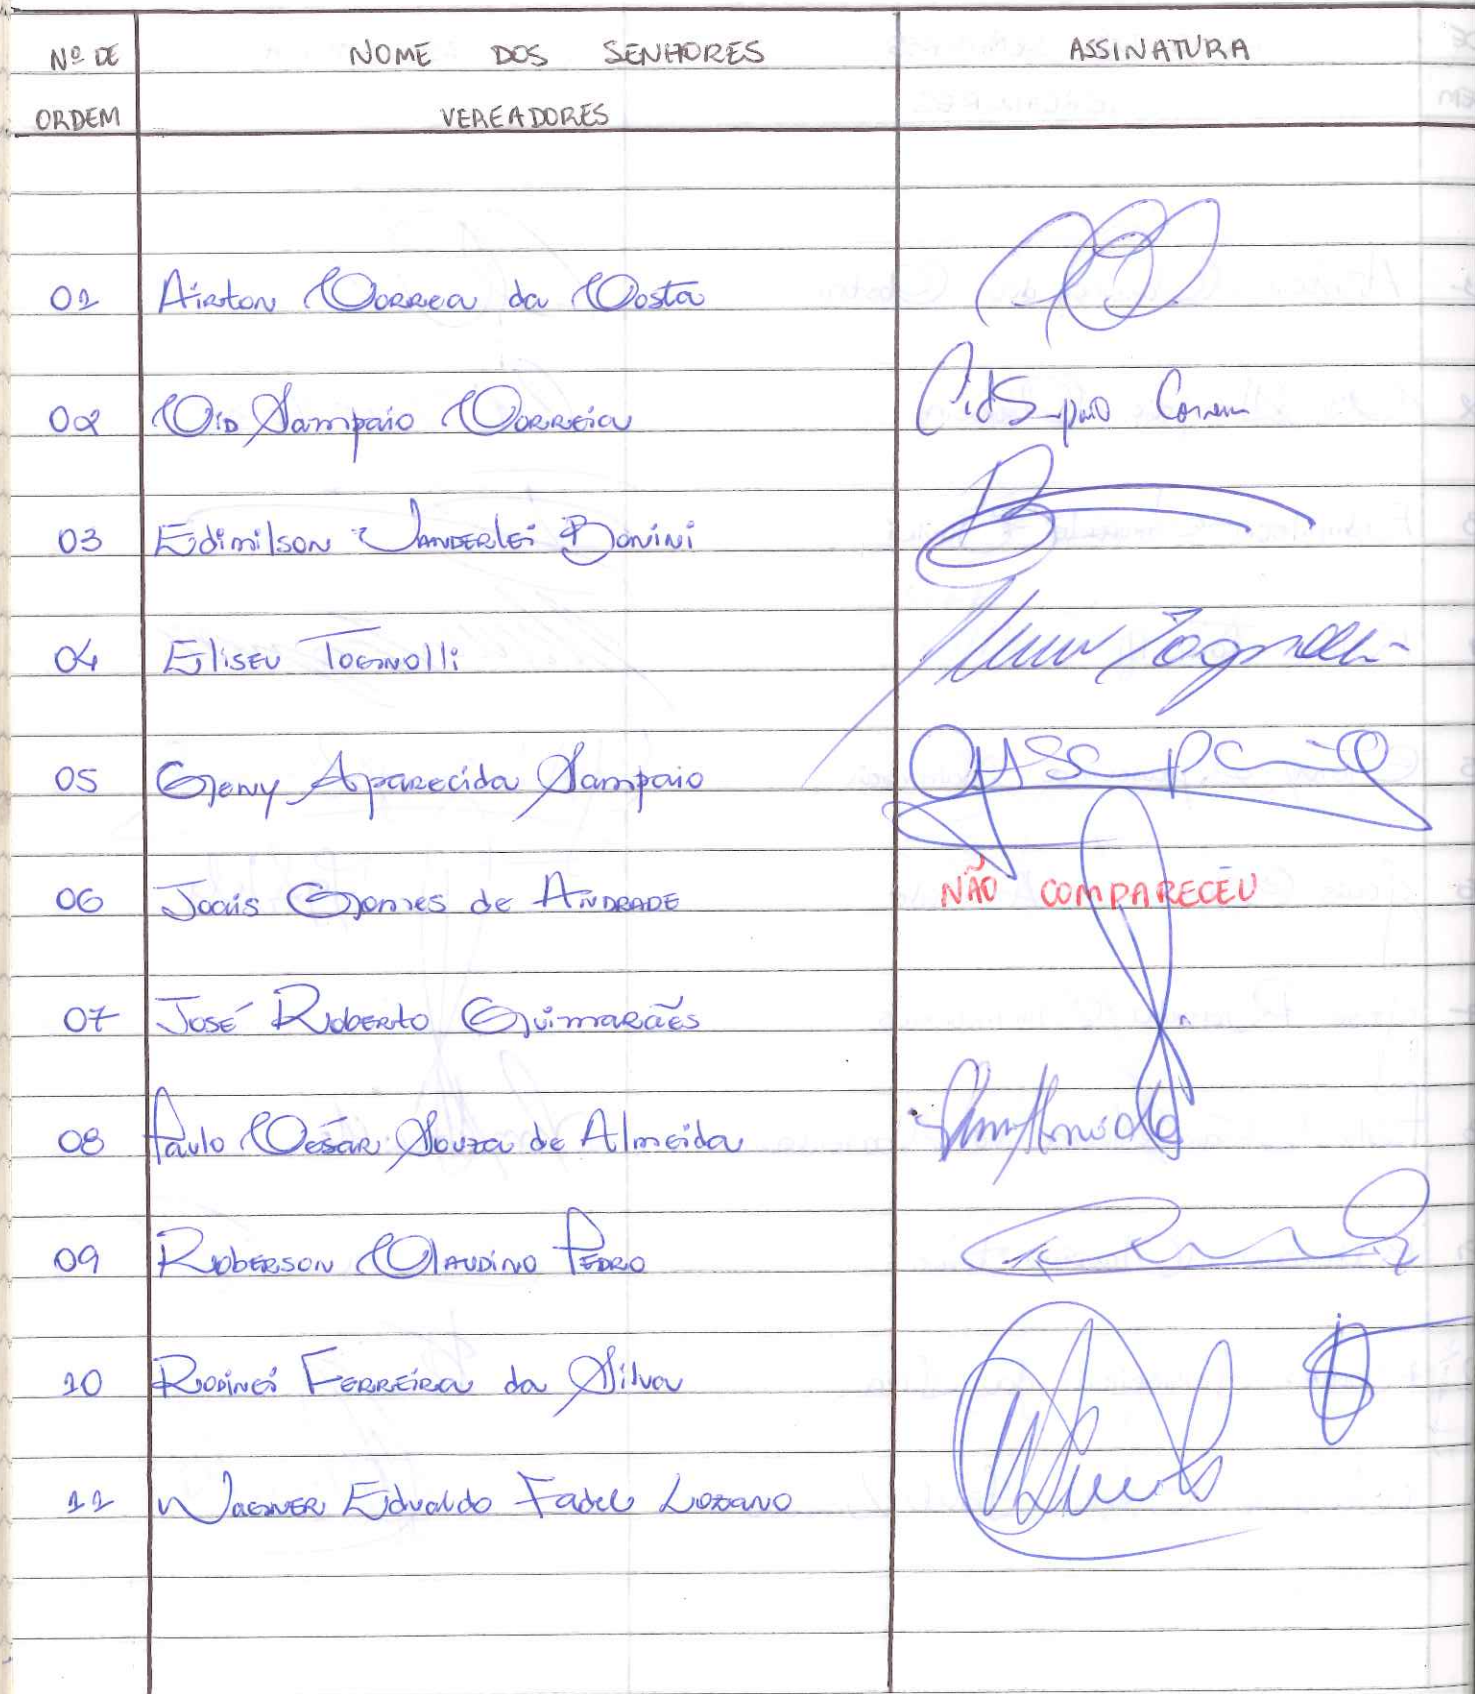 Nº DE NOME DOS SENHORES ASSINATURA
ORDEM VEREADORES
01 Airton Correa da Costa
02 Cid Sampaio Correia Cid Sampaio Correia
03 Edimilson Vanderlei Bonini
04 Eliseu Tognolli Tognolli
05 Geny Aparecida Sampaio
06 Joaïs Gomes de Andrade NÃO COMPARECEU
07 José Roberto Guimarães
08 Paulo César Souza de Almeida
09 Roberson Claudino Pedro
10 Rodinei Ferreira da Silva
11 Wagner Edualdo Fadel Lozano